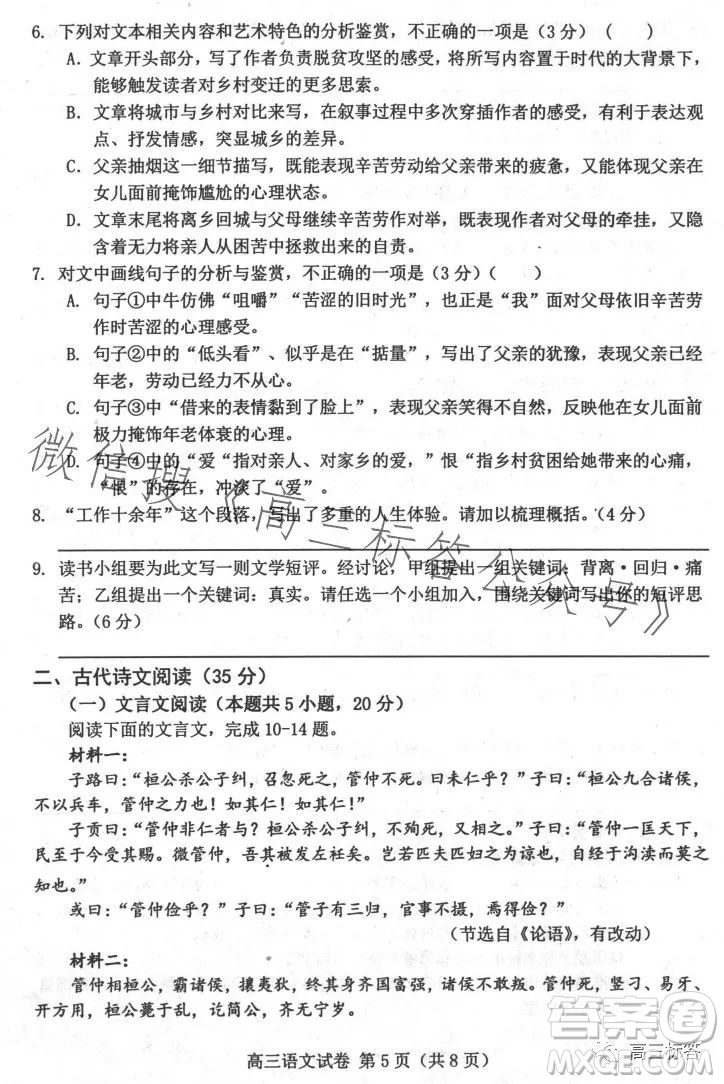 6. 下列对文本相关内容和艺术特色的分析鉴赏，不正确的一项是(3 分)（　　）
A. 文章开头部分，写了作者负责脱贫攻坚的感受，将所写内容置于时代的大背景下，
能够触发读者对乡村变迁的更多思索。
B. 文章将城市与乡村对比来写，在叙事过程中多次穿插作者的感受，有利于表达观
点、抒发情感，突显城乡的差异。
C. 父亲抽烟这一细节描写，既能表现辛苦劳动给父亲带来的疲惫，又能表现父亲在
女儿面前掩饰尴尬的心理状态。
D. 文章末尾将离乡回城与父母继续辛苦劳作对举，既表现作者对父母的牵挂，又隐
含着无力将亲人从困苦中拯救出来的自责。
7. 对文中画线句子的分析与鉴赏，不正确的一项是(3 分)（　　）
A. 句子①中牛仿佛“咀嚼”“苦涩的旧时光”，也是正面表现“我”面对父亲辛苦劳
作时苦涩的心理感受。
B. 句子②中的“低头看”、似在“掂量”，写出了父亲的犹豫，表现出父亲已经
年老，劳动已经力不从心。
C. 句子③中“借来的表情黏到了脸上”，表现出父亲笑得不自然，反映他在女儿面前
极力掩饰年老体衰的心理。
D. 句子④中的“爱“指对亲人、对家乡的爱，”恨“指乡村贫困给她造成的心痛，
“恨”的存在，冲淡了“爱”。
8. “工作十余年”这个段落，写出了多重的人生体验。请加以梳理概括。(4 分)
9. 读书小组要为此文写一则文学短评。经讨论，甲组提出一组关键词：背离·回归·痛
苦；乙组提出一个关键词：真实。请任意选择一个小组加入，围绕关键词写出你的短评思
路。(6 分)
二、古代诗文阅读（35 分）
（一）文言文阅读（本题共 5 小题，20 分）
阅读下面的文言文，完成 10-14 题。
材料一：
子路曰：“桓公杀公子纠，召忽死之，管仲不死。曰未仁乎？”子曰：“桓公九合诸侯，
不以兵车，管仲之力也！如其仁！如其仁！”
子贡曰：“管仲非仁者与？桓公杀公子纠，不殉死，又相之。”子曰：“管仲一匡天下，
民至于今受其赐。微管仲，吾其被发左衽矣。岂若匹夫匹妇之为谅也，自经于沟渎而莫之
知也。”
或曰：“管仲俭乎？”子曰：“管子有三归，官事不摄，焉得俭？”
（节选自《论语》，有改动）
材料二：
管仲相桓公，霸诸侯，攘夷狄，终其身齐国富强，诸侯不敢叛。管仲死，竖刁、易牙、
开方用，桓公薨于乱，讫简公，齐无宁岁。
高三语文试卷 第 5 页（共 8 页）
微信搜《高三标答公众号》
答案圈
高三标答